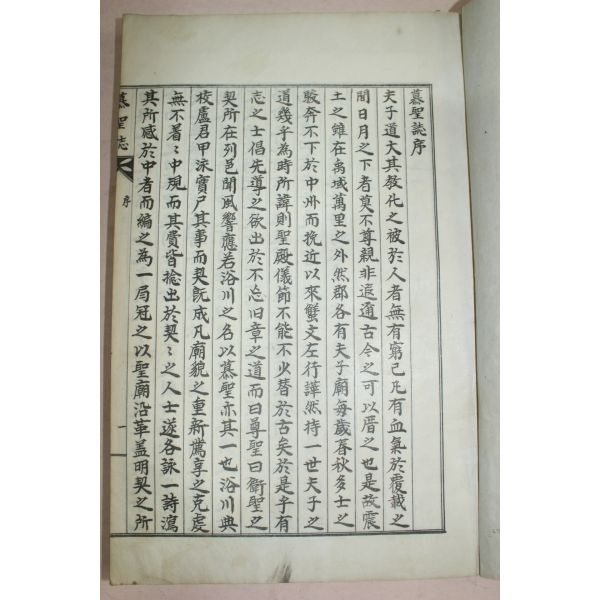 慕聖誌序
夫子道大其敎化之被於人者無有窮已凡有血氣於覆載之
間日月之下者莫不尊親非遐邇古今之可以厝之也是故震
土之雖在禹域萬里之外然郡各有夫子廟每歲春秋多士之
駿奔不下於中州而挽近以來蟹文左行譁然持一世夫子之
道幾乎為時所諱則聖殿儀節不能不少替於古矣於是乎有
志之士倡先導之欲出於不忘旧章之道而曰尊聖曰衛聖之
契所在列邑聞風響應若浴川之名以慕聖亦其一也浴川典
校盧君甲泳實尸其事而契旣成凡廟貌之重新薦享之克虔
無不着々中規而其費皆捴出於契々之人士遂各詠一詩瀉
其所感於中者而編之為一局冠之以聖廟沿革盖明契之所
慕聖誌
序
一